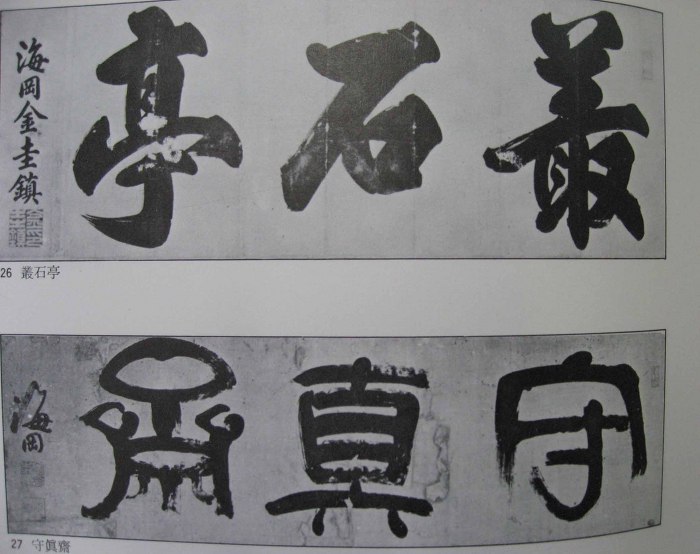 叢石亭
海岡金圭鎮
26 叢石亭
守眞齋
海岡
27 守眞齋